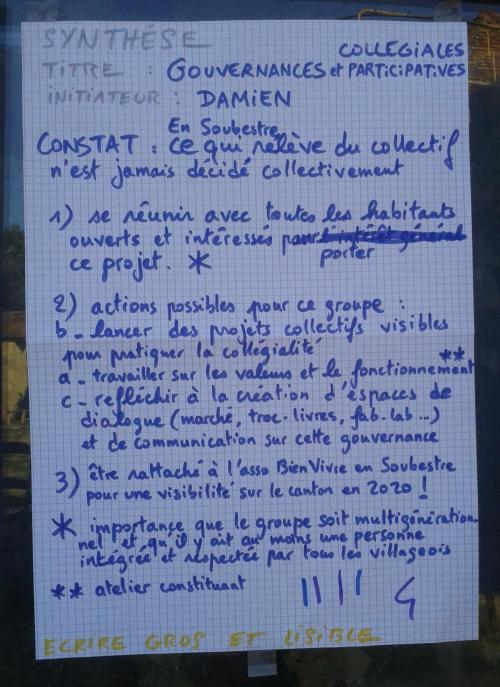 SYNTHÉSE
COLLEGIALES
TITRE : GOUVERNANCES et PARTICIPATIVES
INITIATEUR : DAMIEN
En Soubestre,
CONSTAT : ce qui relève du collectif
n'est jamais décidé collectivement
1) se réunir avec toutes les habitants
ouverts et intéressés pour l'intérêt général
porter
ce projet. *
2) actions possibles pour ce groupe :
b - lancer des projets collectifs visibles
pour pratiquer la collégialité
**
a - travailler sur les valeurs et le fonctionnement
c - refléchir à la création d'éspaces de
dialogue (marché, troc-livres, fab-lab...)
et de communication sur cette gouvernance
3) être rattaché à l'asso BienVivre en Soubestre
pour une visibilité sur le canton en 2020 !
* importance que le groupe soit multigénération-
nel et qu'il y ait au moins une personne
intégrée et respectée par tous les villageois
** atelier constituant
| | | | 4
ECRIRE GROS ET LISIBLE